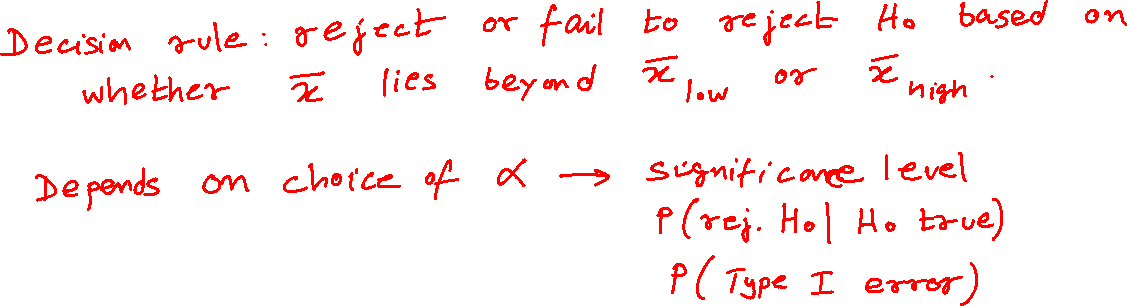 Decision rule: reject or fail to reject H₀ based on
whether x̄ lies beyond x̄ low or x̄ high.
Depends on choice of α → significance level
P(rej. H₀ | H₀ true)
P(Type I error)